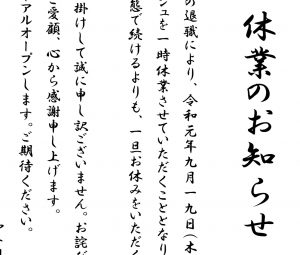 休業のお知らせ
の退職により、令和元年九月一九日(木
シュを一時休業させていただくこととなり
態で続けるよりも、一旦お休みをいただく
掛けして誠に申し訳ございません。お詫び
ご愛顧、心から感謝申し上げます。
アルオープンします。ご期待ください。